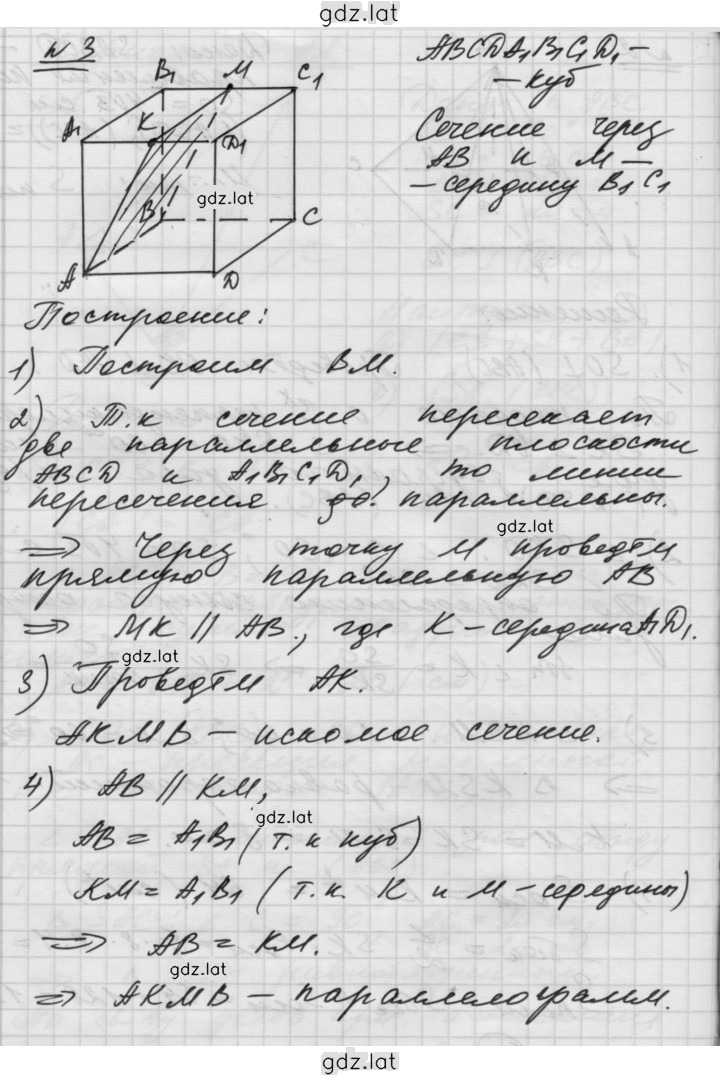 gdz.lat
N 3
B1 M C1
ABCDA1B1C1D1 –
– куб
A1 K D1
Сечение через
AB и M –
– середину B1C1
gdz.lat
B C
A D
Построение:
1) Построим BM.
2) Т.к сечение пересекает
две параллельные плоскости
ABCD и A1B1C1D1, то линии
пересечения параллельны.
gdz.lat
⇒ Через точку M проведём
прямую параллельную AB
⇒ MK || AB., где K – середина A1D1.
gdz.lat
3) Проведём AK.
AKMB – искомое сечение.
4) AB || KM,
gdz.lat
AB = A1B1 (т.к куб)
KM = A1B1 (т.к. K и M – середины)
⇒ AB = KM.
gdz.lat
⇒ AKMB – параллелограмм.
gdz.lat